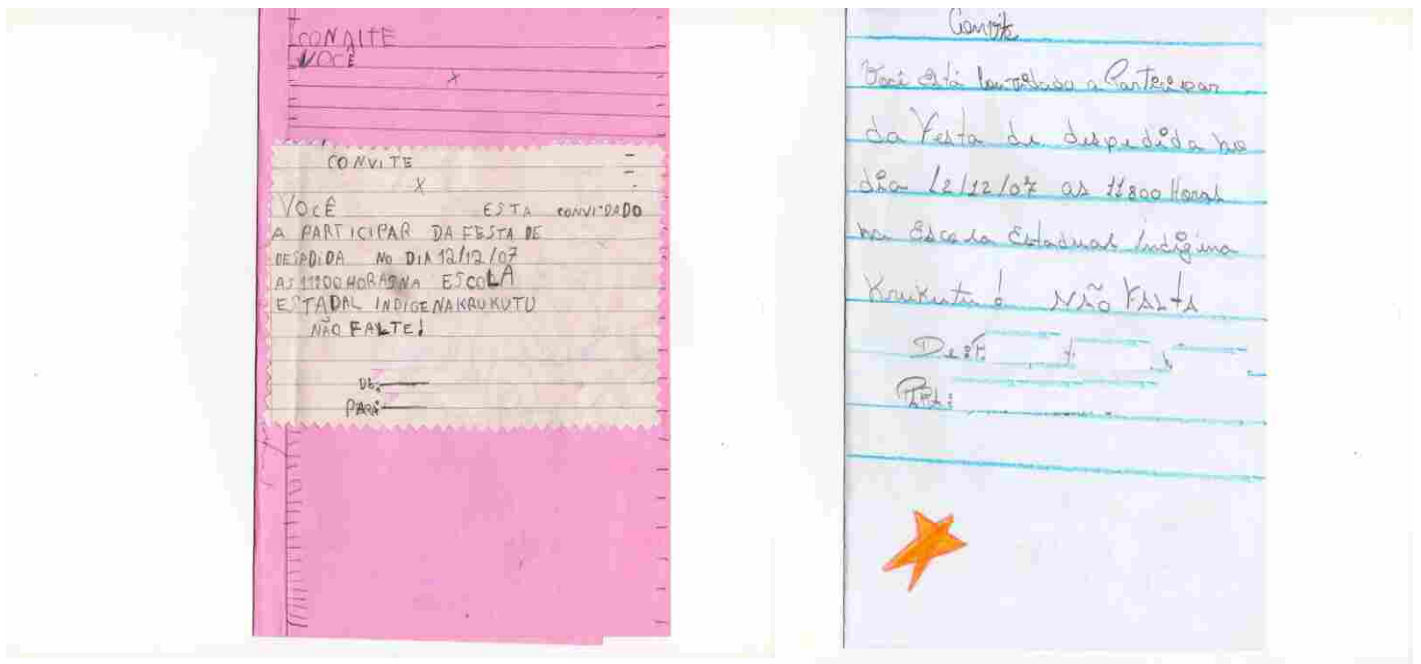 CONAITE
VOCÊ
X
CONVITE
X
VOCÊ ESTA CONVIDADO
A PARTICIPAR DA FESTA DE
DESPDIDA NO DIA 12/12/07
AS 11:00 HORAS NA ESCOLA
ESTADAL INDIGENA KRUKUTU
NÃO FALTE!
DE:
PARA:
Convite
Você está convidado a Participar
da Festa de despedida no
dia 12/12/07 as 11:00 Horas
na Escola Estadual Indigina
Krukutu! NÃO FALTA